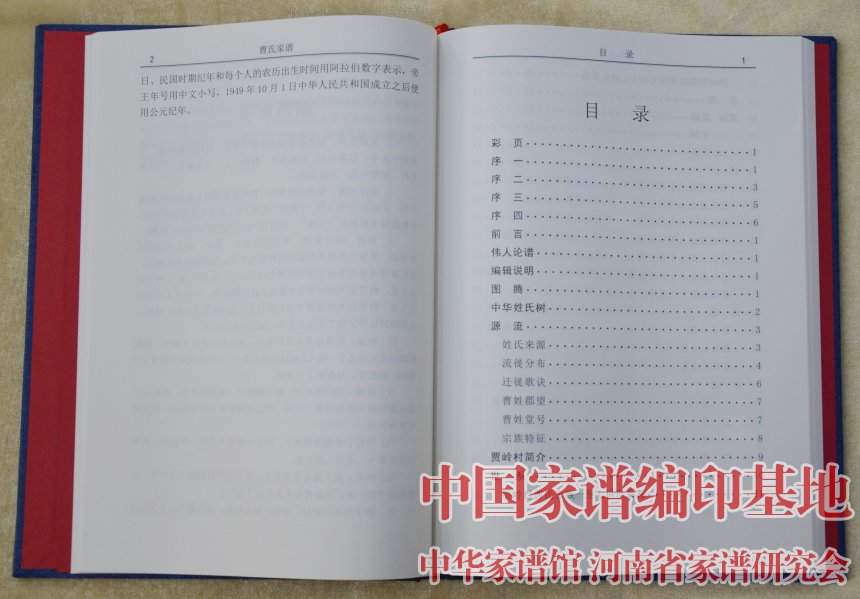 2
曹氏家谱
日、民国时期纪年和每个人的农历出生时间用阿拉伯数字表示，帝
王年号用中文小写，1949年10月1日中华人民共和国成立之后使
用公元纪年。
目 录 1
目 录
彩 页 1
序 一 1
序 二 3
序 三 5
序 四 6
前 言 1
伟人论谱 1
编辑说明 1
图 腾 1
中华姓氏树 2
源 流 3
姓氏来源 3
流徙分布 4
迁徙歌诀 6
曹姓郡望 7
曹姓堂号 7
宗族特征 8
贾岭村简介 9
中国家谱编印基地
中华家谱馆 河南省家谱研究会